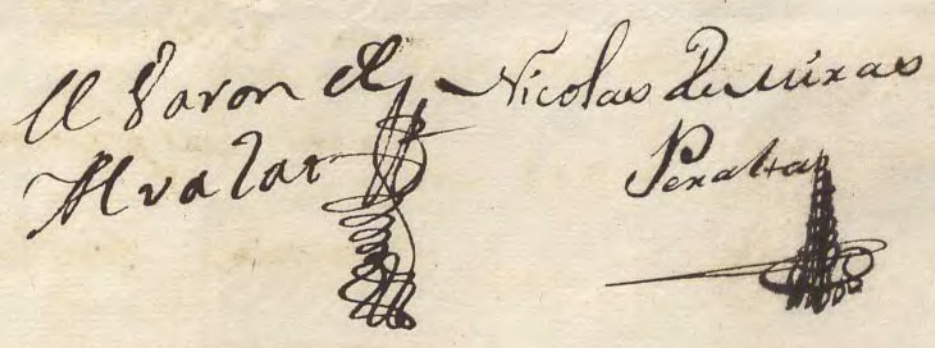 El Baron de
Albalat
Nicolas de Mixas
Peralta